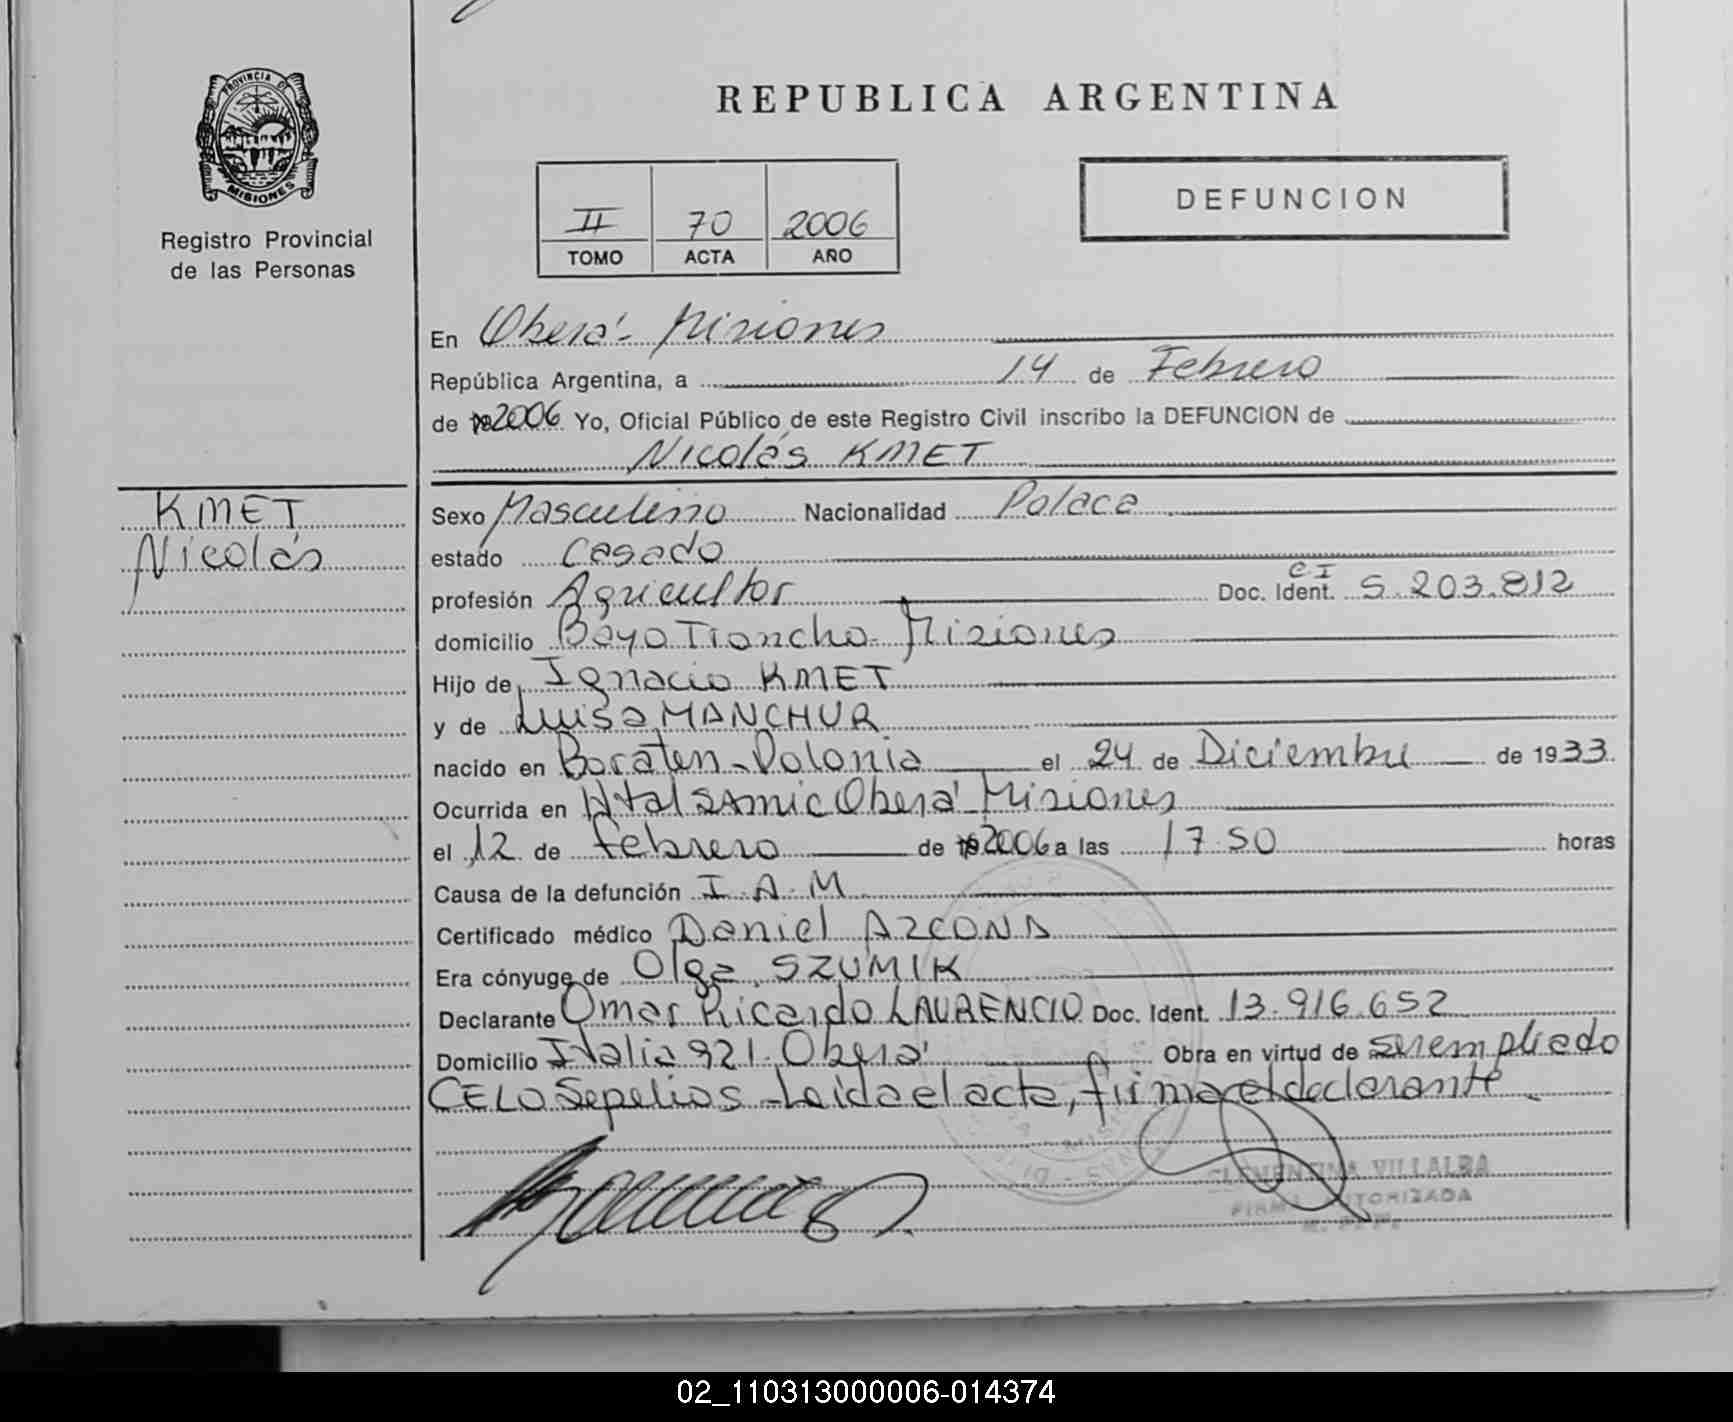 PROVINCIA DE
MISIONES
Registro Provincial
de las Personas
REPUBLICA ARGENTINA
II 70 2006
TOMO ACTA AÑO
DEFUNCION
En Oberá - Misiones
República Argentina, a 14 de Febrero
de 2006 Yo, Oficial Público de este Registro Civil inscribo la DEFUNCION de
Nicolás KMET
KMET
Nicolás
Sexo Masculino Nacionalidad Polaca
estado Casado
profesión Agricultor Doc. Ident. CI 5.203.812
domicilio Bayo Troncho - Misiones
Hijo de Ignacio KMET
y de Luisa MANCHUR
nacido en Boraten - Polonia el 24 de Diciembre de 1933
Ocurrida en Htal SAmic Oberá Misiones
el 12 de Febrero de 2006 a las 17.50 horas
Causa de la defunción I.A.M
Certificado médico Daniel AZCONA
Era cónyuge de Olga SZUMIK
Declarante Omar Ricardo LAURENCIO Doc. Ident. 13.916.652
Domicilio Italia 921. Oberá Obra en virtud de ser empleado
CELO Sepelios - Leida el acta, firma el declarante
CLEMENTINA VILLALBA
FIRMA AUTORIZADA
02_110313000006-014374